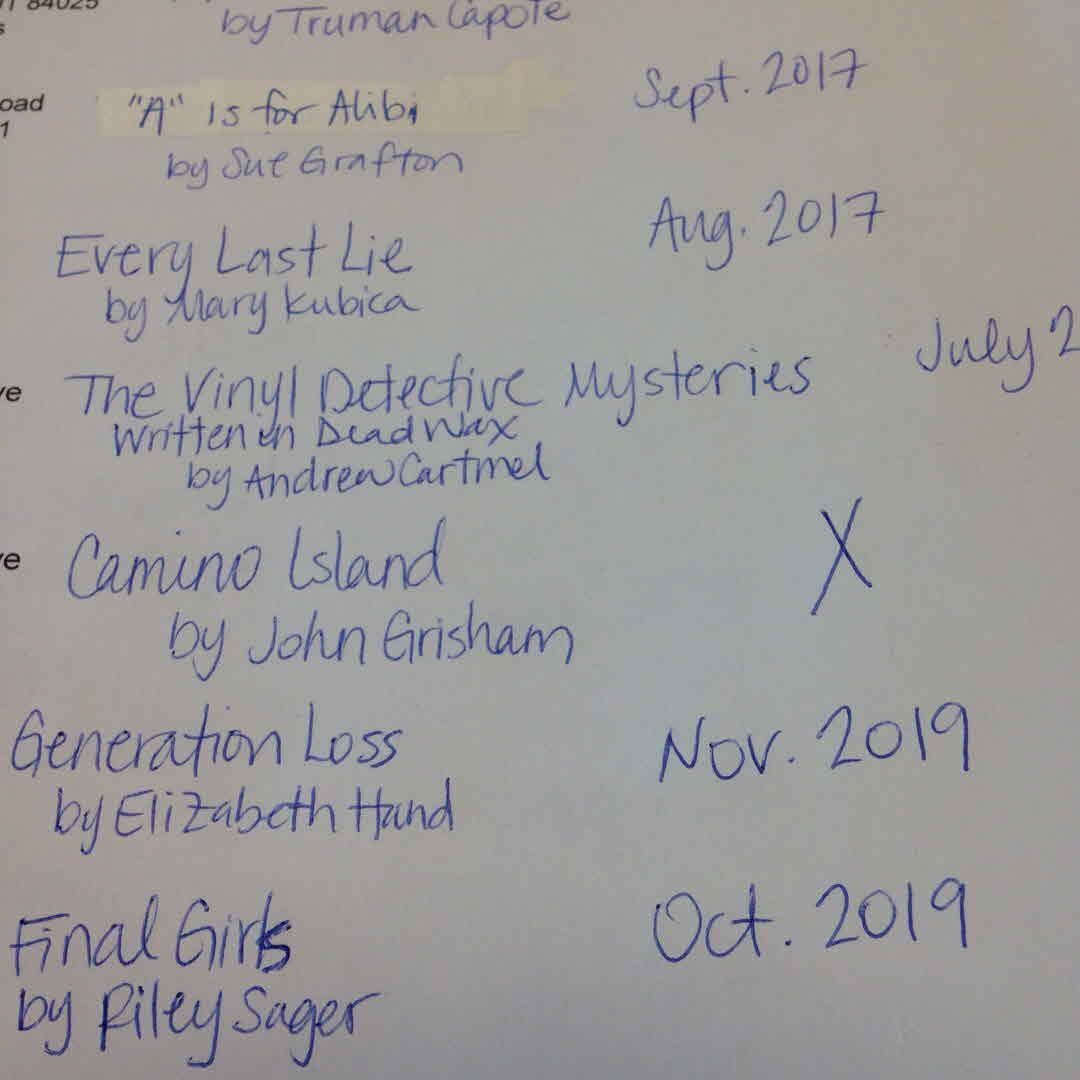 84025
by Truman Capote
Sept. 2017
oad
"A" is for Alibi
1
by Sue Grafton
Aug. 2017
Every Last Lie
by Mary Kubica
July 2
ve The Vinyl Detective Mysteries
Written in Dead Wax
by Andrew Cartmel
X
ve Camino Island
by John Grisham
Generation Loss Nov. 2019
by Elizabeth Hand
Final Girls Oct. 2019
by Riley Sager